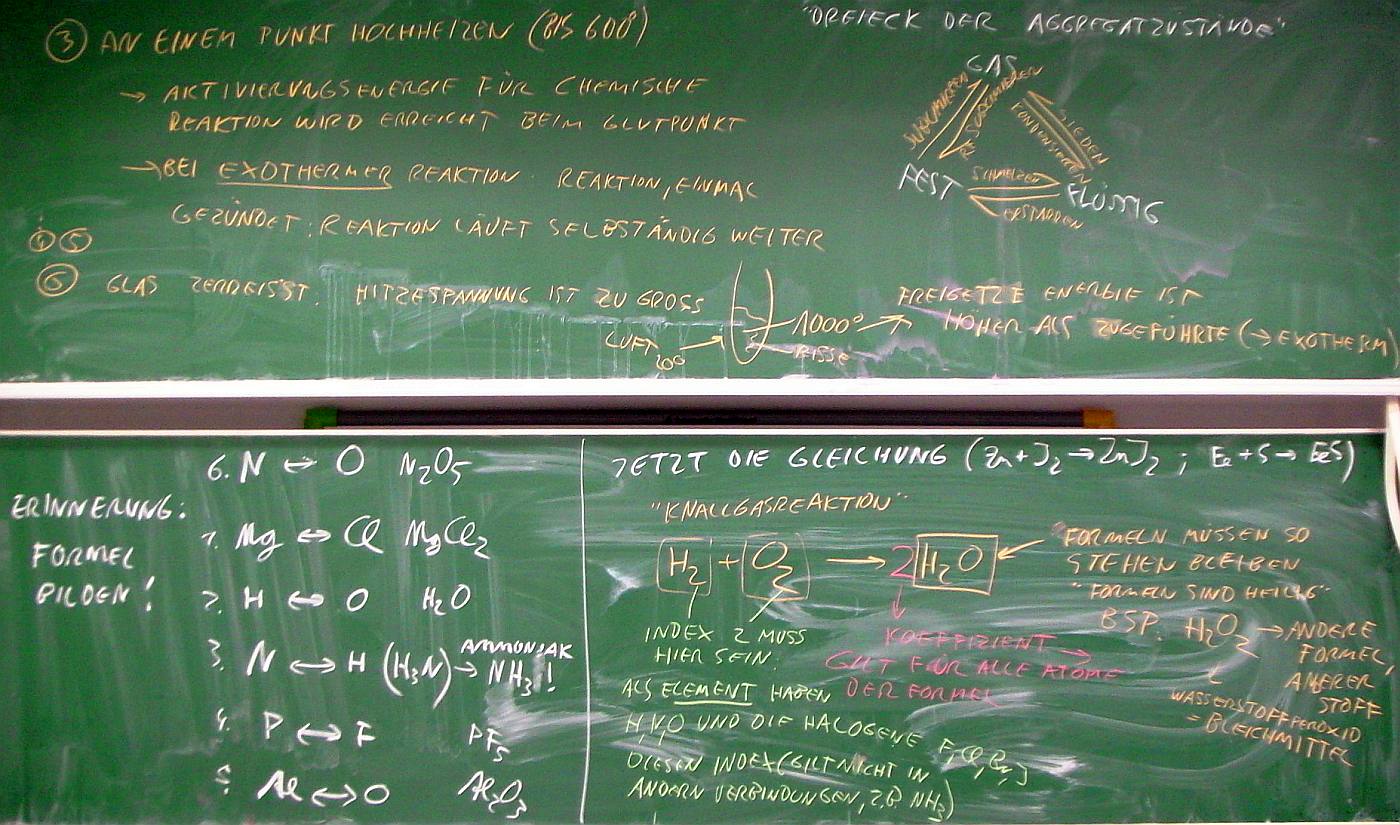 ③ AN EINEM PUNKT HOCHHEIZEN (BIS 600°)
→ AKTIVIERUNGSENERGIE FÜR CHEMISCHE
REAKTION WIRD ERREICHT BEIM GLUTPUNKT
→ BEI EXOTHERMER REAKTION: REAKTION, EINMAL
GEZÜNDET: REAKTION LÄUFT SELBSTÄNDIG WEITER
④ ⑤
⑥ GLAS ZERREISST. HITZESPANNUNG IST ZU GROSS
LUFT 20°
1000°
RISSE
FREIGETZTE ENERGIE IST
HÖHER ALS ZUGEFÜHRTE (→ EXOTHERM)
"DREIECK DER AGGREGATZUSTÄNDE"
GAS
SUBLIMIEREN
SIEDEN
KONDENSIEREN
FEST
SCHMELZEN
FLÜSSIG
ERSTARREN
ERINNERUNG:
FORMEL
BILDEN!
6. N ↔ O N₂O₅
1. Mg ↔ Cl MgCl₂
2. H ↔ O H₂O
3. N ↔ H (H₃N) → NH₃!
AMMONIAK
4. P ↔ F PF₅
5. Al ↔ O Al₂O₃
JETZT DIE GLEICHUNG (Zn + J₂ → ZnJ₂ ; Fe + S → FeS)
"KNALLGASREAKTION"
H₂ + O₂ → 2 H₂O
INDEX 2 MUSS
HIER SEIN.
ALS ELEMENT HABEN
H, N, O UND DIE HALOGENE F, Cl, Br, J
DIESEN INDEX (GILT NICHT IN
ANDERN VERBINDUNGEN, Z.B NH₃)
KOEFFIZIENT →
GILT FÜR ALLE ATOME
DER FORMEL
"FORMELN MÜSSEN SO
STEHEN BLEIBEN
"FORMELN SIND HEILIG"
BSP. H₂O₂ → ANDERE
FORMEL,
ANERER
STOFF
WASSERSTOFFPEROXID
= BLEICHMITTEL